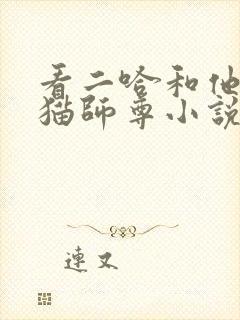 看二哈和他
猫師尊小説
連又